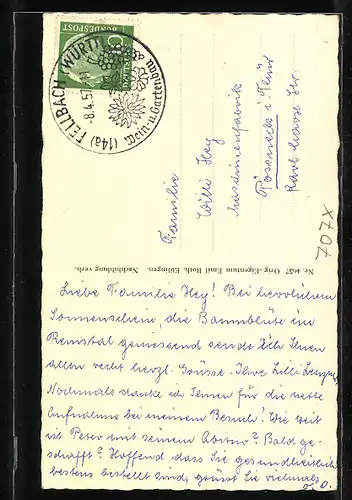 DEUTSCHE BUNDESPOST
(14a) FELLBACH (WÜRTT)
-8.4.5
Wein-u. Gartenbau
Familie
Willi Hey
Maschinenfabrik
Pössneck i. Thür
Karl Marx Str.
707X
Nr. 4657 Orig.-Eigentum Emil Roth, Eßlingen. Nachbildung verb.
Liebe Familie Hey! Bei herrlichem
Sonnenschein, die Baumblüte im
Remstal geniessend sende ich Ihnen
allen recht herzl. Grüsse. Ihre Lilli
Nochmals danke ich Ihnen für die nette
Aufnahme bei meinem Besuch! Wie weit
ist Peter mit seinem Abitur? Bald ge-
schafft? Hoffend dass Sie gesundheitlich
bestens bestellt sind, grüsst Sie vielmals